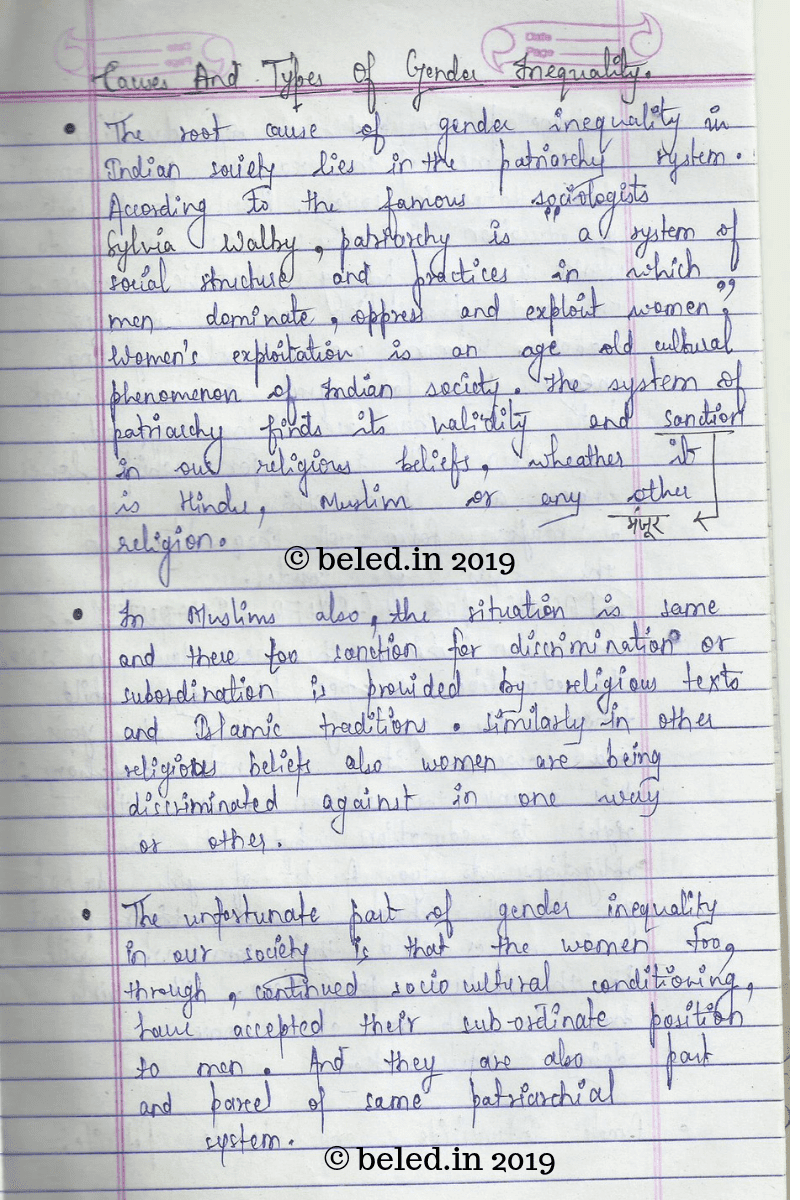 Date
Page
Causes And Types Of Gender Inequality.
• The root cause of gender inequality in
Indian society lies in the patriarchy system.
According to the famous sociologists
Sylvia Walby, patriarchy is "a system of
social structure and practices in which
men dominate, oppress and exploit women"
Women's exploitation is an age old cultural
phenomenon of Indian society. The system of
patriarchy finds its validity and sanction
in our religious beliefs, wheather it
is Hindu, Muslim or any other
मंजूर
religion.
© beled.in 2019
• In Muslims also, the situation is same
and there too sanction for discrimination or
subordination is provided by religious texts
and Islamic traditions. Similarly in other
religious beliefs also women are being
discriminated against in one way
or other.
• The unfortunate part of gender inequality
in our society is that the women too,
through, continued socio cultural conditioning,
have accepted their sub-ordinate position
to men. And they are also part
and parcel of same patriarchial
system.
© beled.in 2019